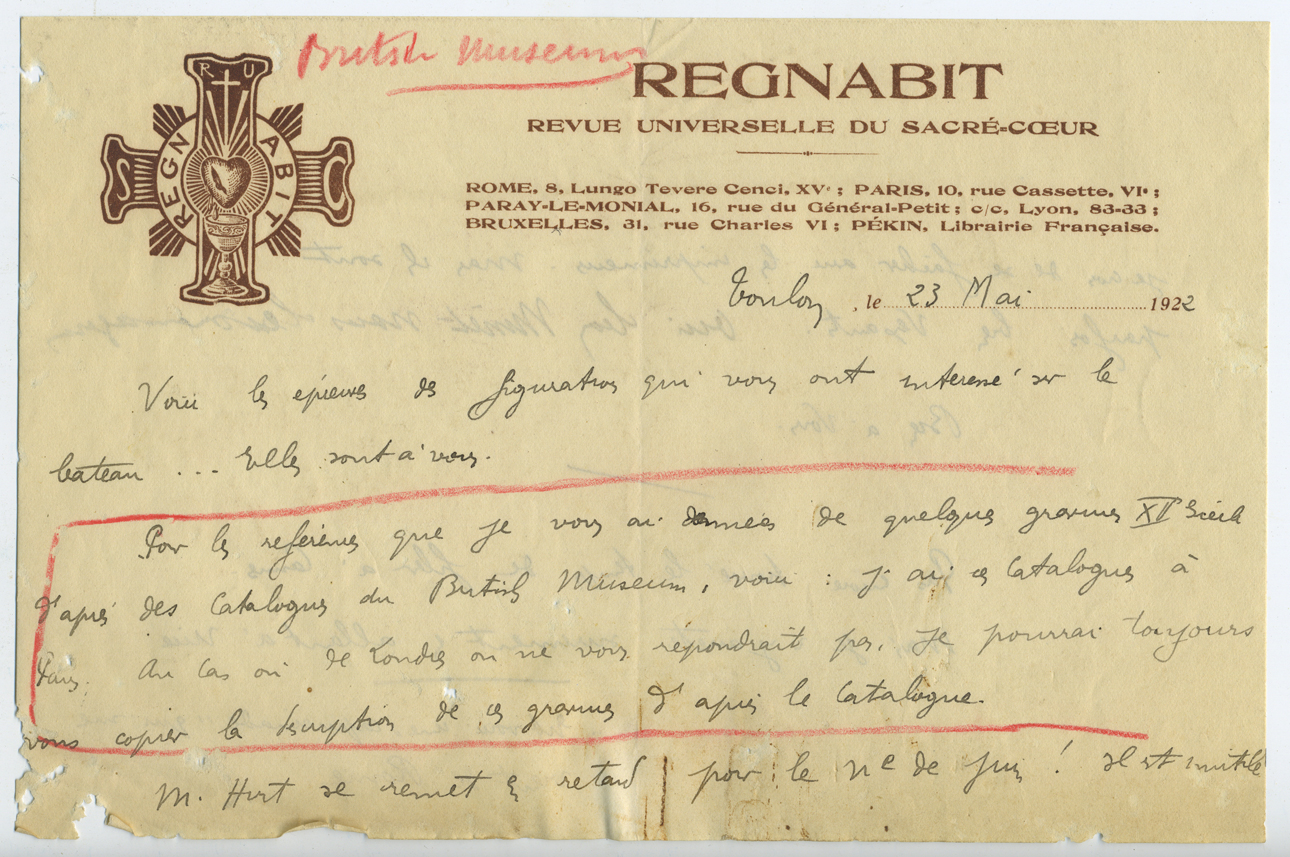 British Museum
R U
S REGNABIT C
REGNABIT
REVUE UNIVERSELLE DU SACRÉ-CŒUR
ROME, 8, Lungo Tevere Cenci, XVe ; PARIS, 10, rue Cassette, VIe ;
PARAY-LE-MONIAL, 16, rue du Général-Petit ; c/c, Lyon, 83-33 ;
BRUXELLES, 31, rue Charles VI ; PÉKIN, Librairie Française.
Toulon, le 23 Mai 1922
Voici les épreuves des figurations qui vous ont interessé sur le
bateau ... Elles sont à vous.
Pour les references que je vous ai données de quelques gravures Siècle
d'après des Catalogues du British Museum, voici : j'ai ces Catalogues à
Paris. Au cas où de Londres on ne vous repondrait pas, je pourrai toujours
vous copier la description de ces gravures d'après le Catalogue.
M. se remet en retard pour le ne de Juin ! Il est inutile